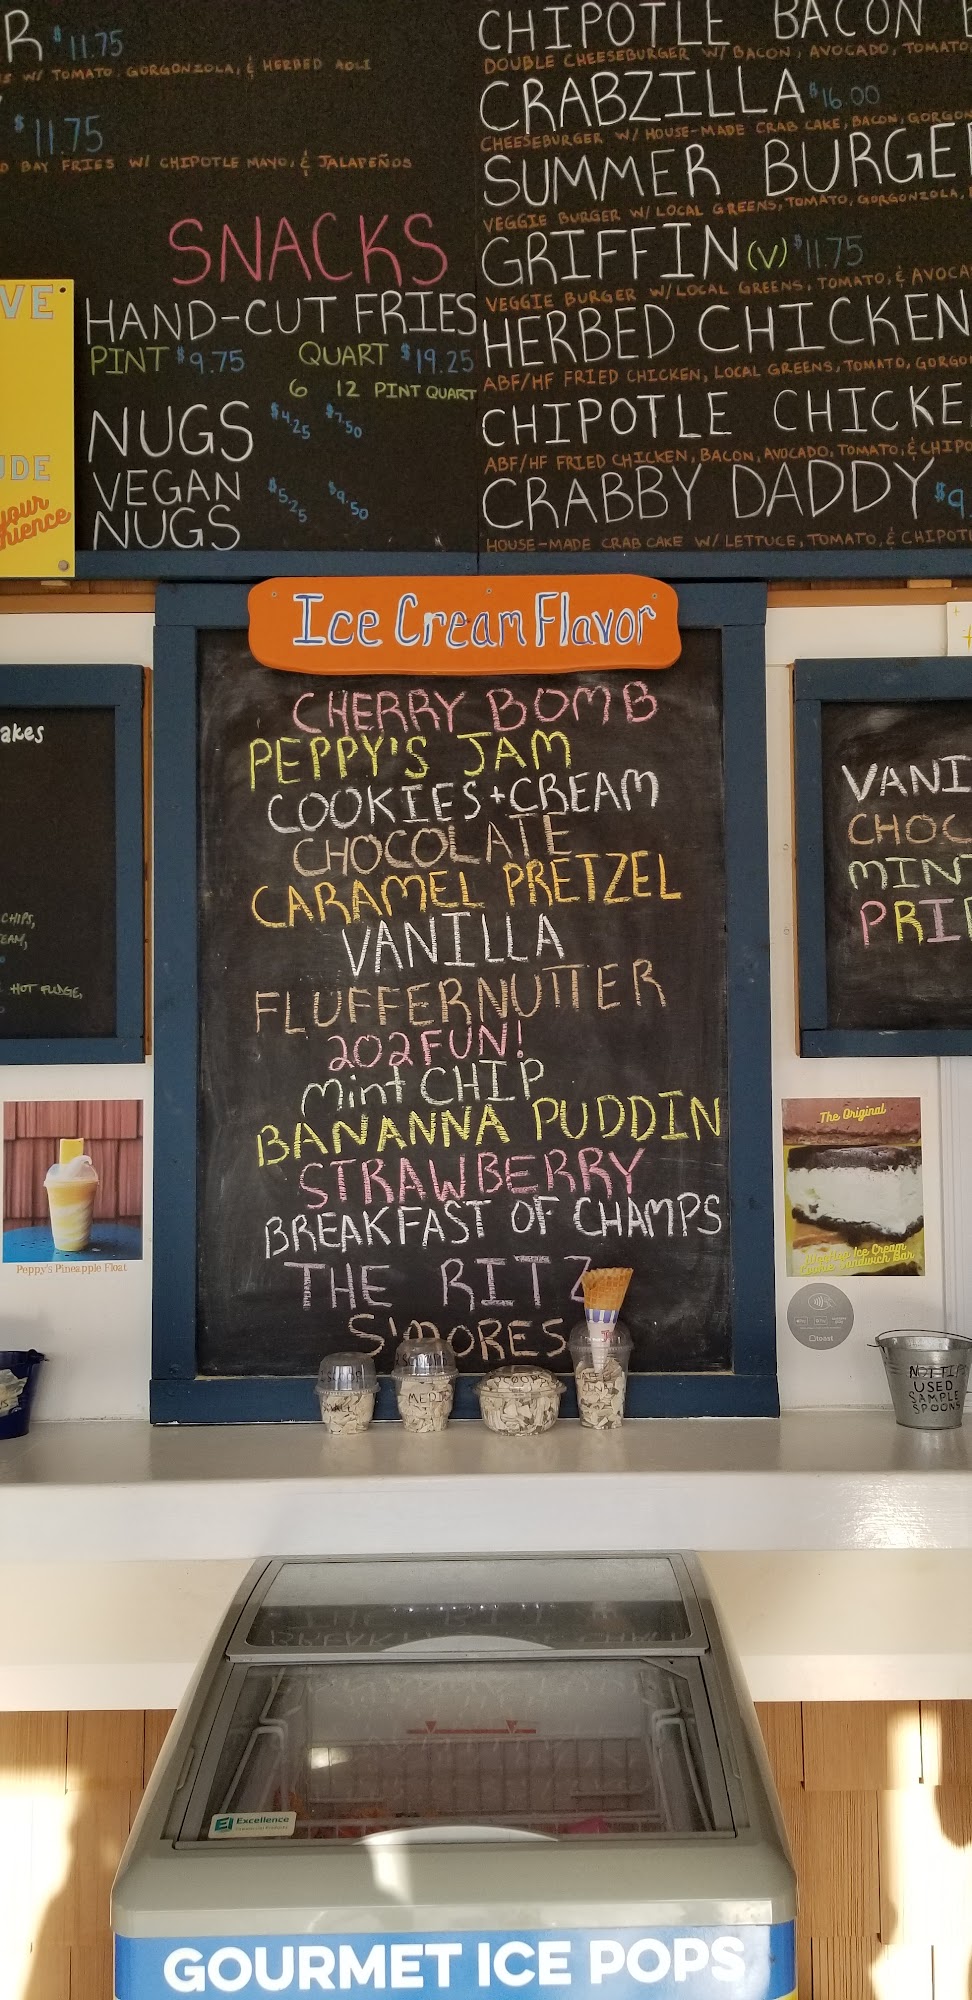 R $11.75
W/ TOMATO, GORGONZOLA, & HERBED AOLI
$11.75
BAY FRIES W/ CHIPOTLE MAYO, & JALAPEÑOS
SNACKS
HAND-CUT FRIES
PINT $9.75 QUART $19.25
6 12 PINT QUART
NUGS $4.25 $7.50
VEGAN NUGS $5.25 $9.50
CHIPOTLE BACON
DOUBLE CHEESEBURGER W/ BACON, AVOCADO, TOMATO
CRABZILLA $16.00
CHEESEBURGER W/ HOUSE-MADE CRAB CAKE, BACON, GORGON
SUMMER BURGE
VEGGIE BURGER W/ LOCAL GREENS, TOMATO, GORGONZOLA,
GRIFFIN (V) $11.75
VEGGIE BURGER W/ LOCAL GREENS, TOMATO, & AVOCA
HERBED CHICKEN
ABF/HF FRIED CHICKEN, LOCAL GREENS, TOMATO, GORGO
CHIPOTLE CHICKE
ABF/HF FRIED CHICKEN, BACON, AVOCADO, TOMATO, & CHIPO
CRABBY DADDY $9
HOUSE-MADE CRAB CAKE W/ LETTUCE, TOMATO, & CHIPOTL
VE
UDE
your
rience
Ice Cream Flavor
CHERRY BOMB
PEPPY'S JAM
COOKIES+CREAM
CHOCOLATE
CARAMEL PRETZEL
VANILLA
FLUFFERNUTTER
202FUN!
Mint CHIP
BANANNA PUDDIN
STRAWBERRY
BREAKFAST OF CHAMPS
THE RITZ
S'MORES
akes
CHIPS,
EAM,
HOT FUDGE,
VANI
CHOC
MINT
PRI
Peppy's Pineapple Float
The Original
Ice Cream
Cookie Sandwich Bar
toast
SMALL
MEDI
SCOOPS
NOT TIPS
USED
SAMPLE
SPOONS
Excellence
GOURMET ICE POPS